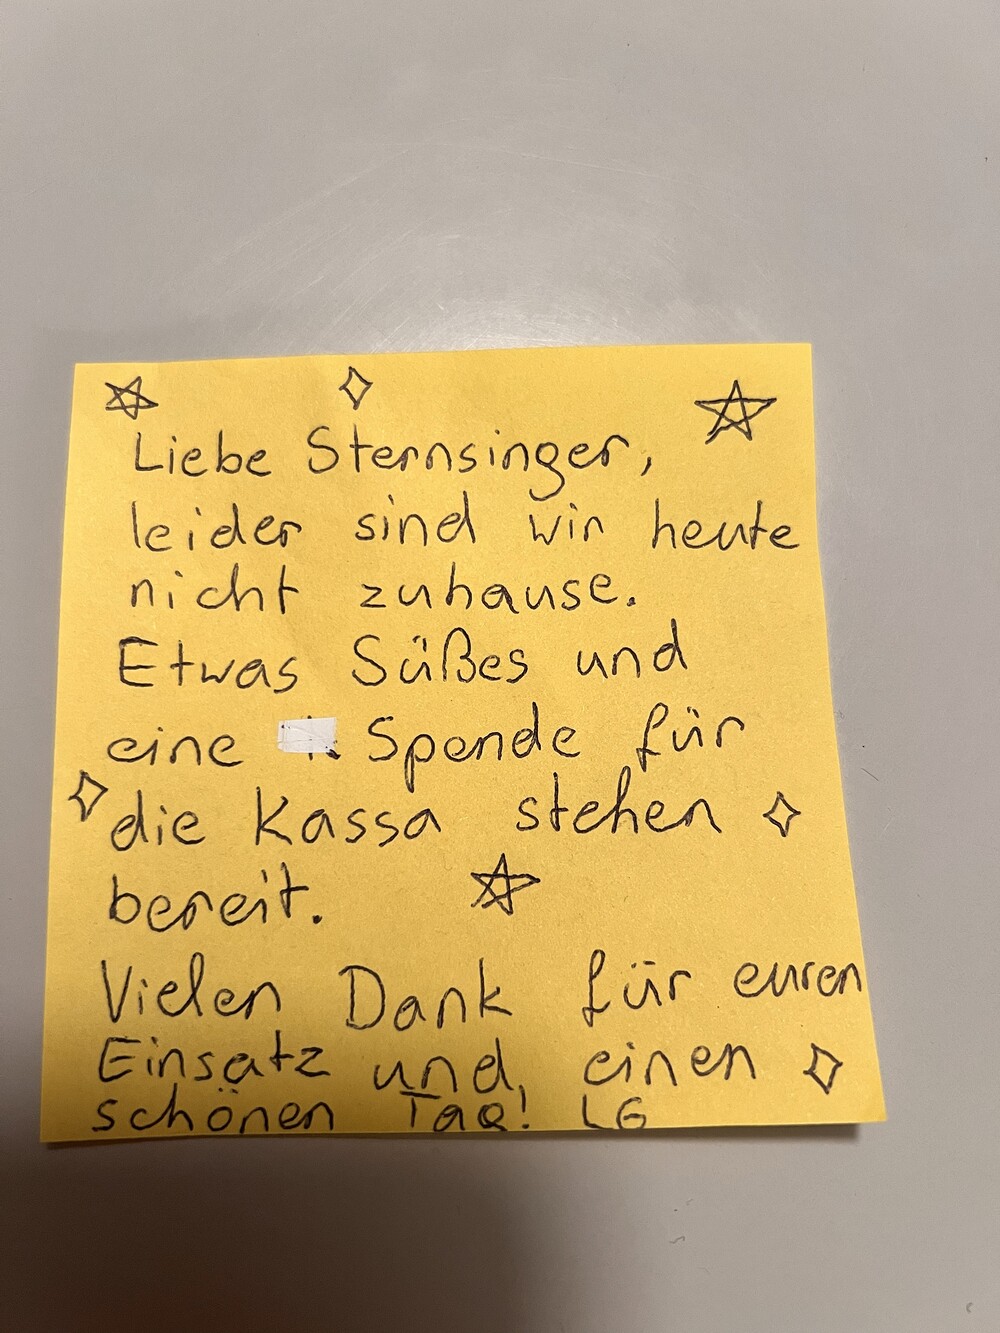 Liebe Sternsinger,
leider sind wir heute
nicht zuhause.
Etwas Süßes und
eine Spende für
die Kassa stehen
bereit.
Vielen Dank für euren
Einsatz und einen
schönen Tag! LG